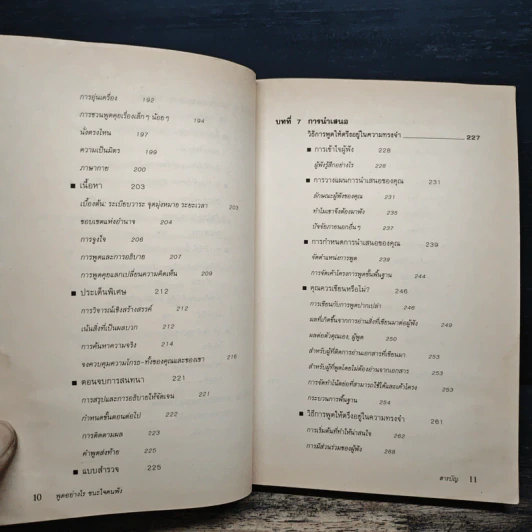 การอุ่นเครื่อง 192
การชวนพูดคุยเรื่องเล็กๆ น้อยๆ 194
นั่งตรงไหน 197
ความเป็นมิตร 199
ภาษากาย 200
■ เนื้อหา 203
เบื้องต้น: ระเบียบวาระ จุดมุ่งหมาย ระยะเวลา 203
ขอบเขตแห่งอำนาจ 204
การจูงใจ 206
การพูดและการอธิบาย 207
การพูดคุยแลกเปลี่ยนความคิดเห็น 209
■ ประเด็นพิเศษ 212
การวิจารณ์เชิงสร้างสรรค์ 212
เน้นสิ่งที่เป็นผลบวก 214
การค้นหาความจริง 214
จงควบคุมความโกรธ-ทั้งของคุณและของเขา 216
■ ตอนจบการสนทนา 221
การสรุปและการอธิบายให้ชัดเจน 221
กำหนดขั้นตอนต่อไป 222
การติดตามผล 223
คำพูดส่งท้าย 225
■ แบบสำรวจ 225
10 พูดอย่างไร ชนะใจคนฟัง
บทที่ 7 การนำเสนอ
วิธีการพูดให้ตรึงอยู่ในความทรงจำ 227
■ การเข้าใจผู้ฟัง 228
ผู้ฟังรู้สึกอย่างไร 228
■ การวางแผนการนำเสนอของคุณ 231
ลักษณะผู้ฟังของคุณ 231
ทำไมเขาจึงต้องมาฟัง 235
ปัจจัยภายนอกอื่นๆ 237
■ การกำหนดการนำเสนอของคุณ 239
จัดตำแหน่งการพูด 239
การจัดเค้าโครงการพูดขั้นพื้นฐาน 244
■ คุณควรเขียนหรือไม่? 246
การเขียนกับการพูดปากเปล่า 248
ผลที่เกิดขึ้นจากการอ่านสิ่งที่เขียนมาต่อผู้ฟัง 249
ผลต่อตัวคุณเอง, ผู้พูด 250
สำหรับผู้ที่ติดการอ่านเอกสารที่เขียนมา 253
สำหรับผู้ที่พูดโดยไม่ต้องอ่านจากเอกสาร 253
การจัดทำโน้ตย่อที่สามารถใช้ได้และเค้าโครง 253
กระบวนการพื้นฐาน 254
■ วิธีการพูดให้ตรึงอยู่ในความทรงจำ 261
การเริ่มต้นที่ทำให้น่าสนใจ 262
การมีส่วนร่วมของผู้ฟัง 268
สารบัญ 11